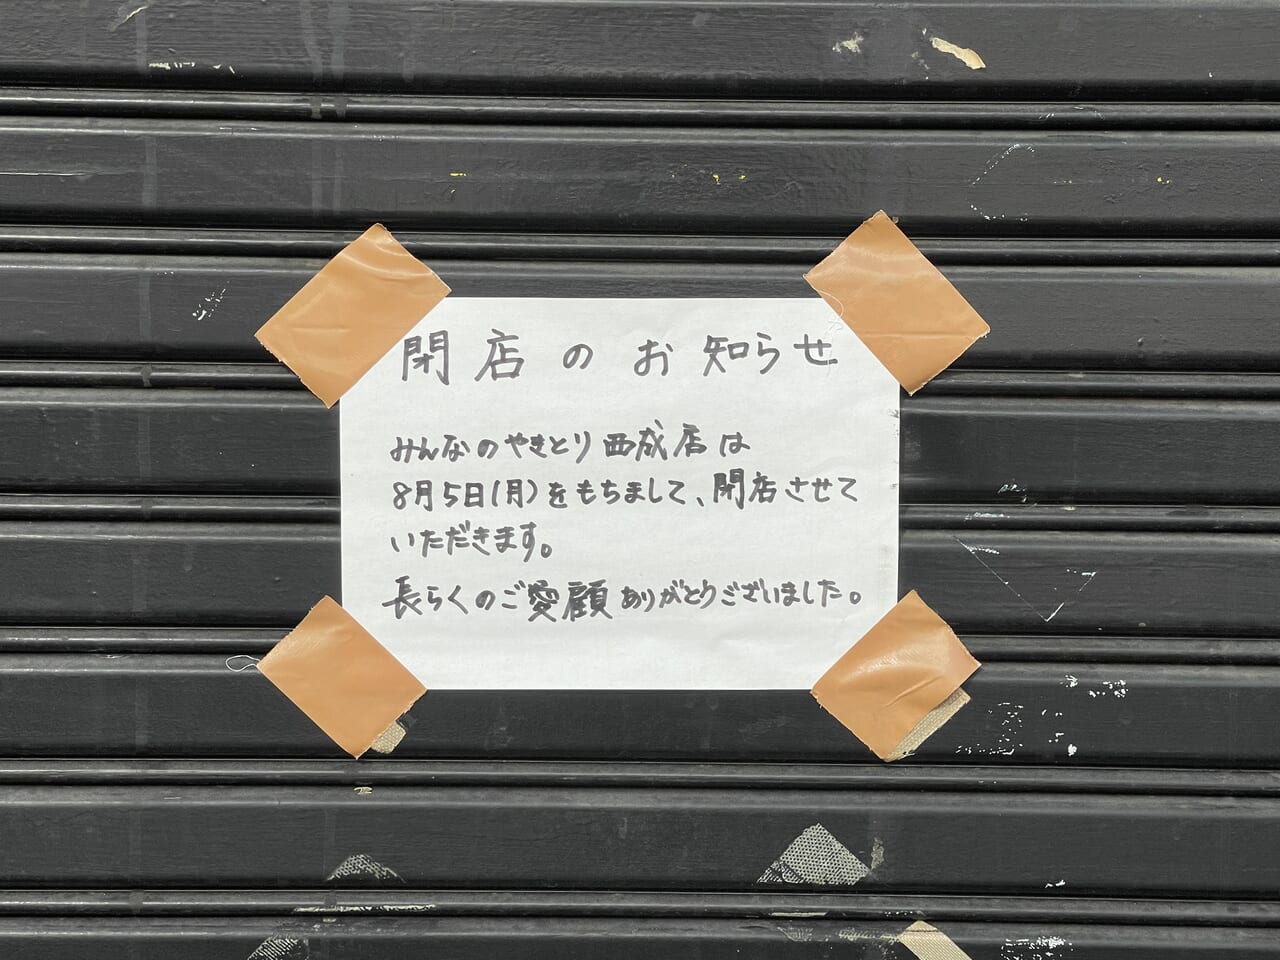 閉店のお知らせ
みんなのやきとり西成店は
8月5日(月)をもちまして、閉店させて
いただきます。
長らくのご愛顧ありがとうございました。